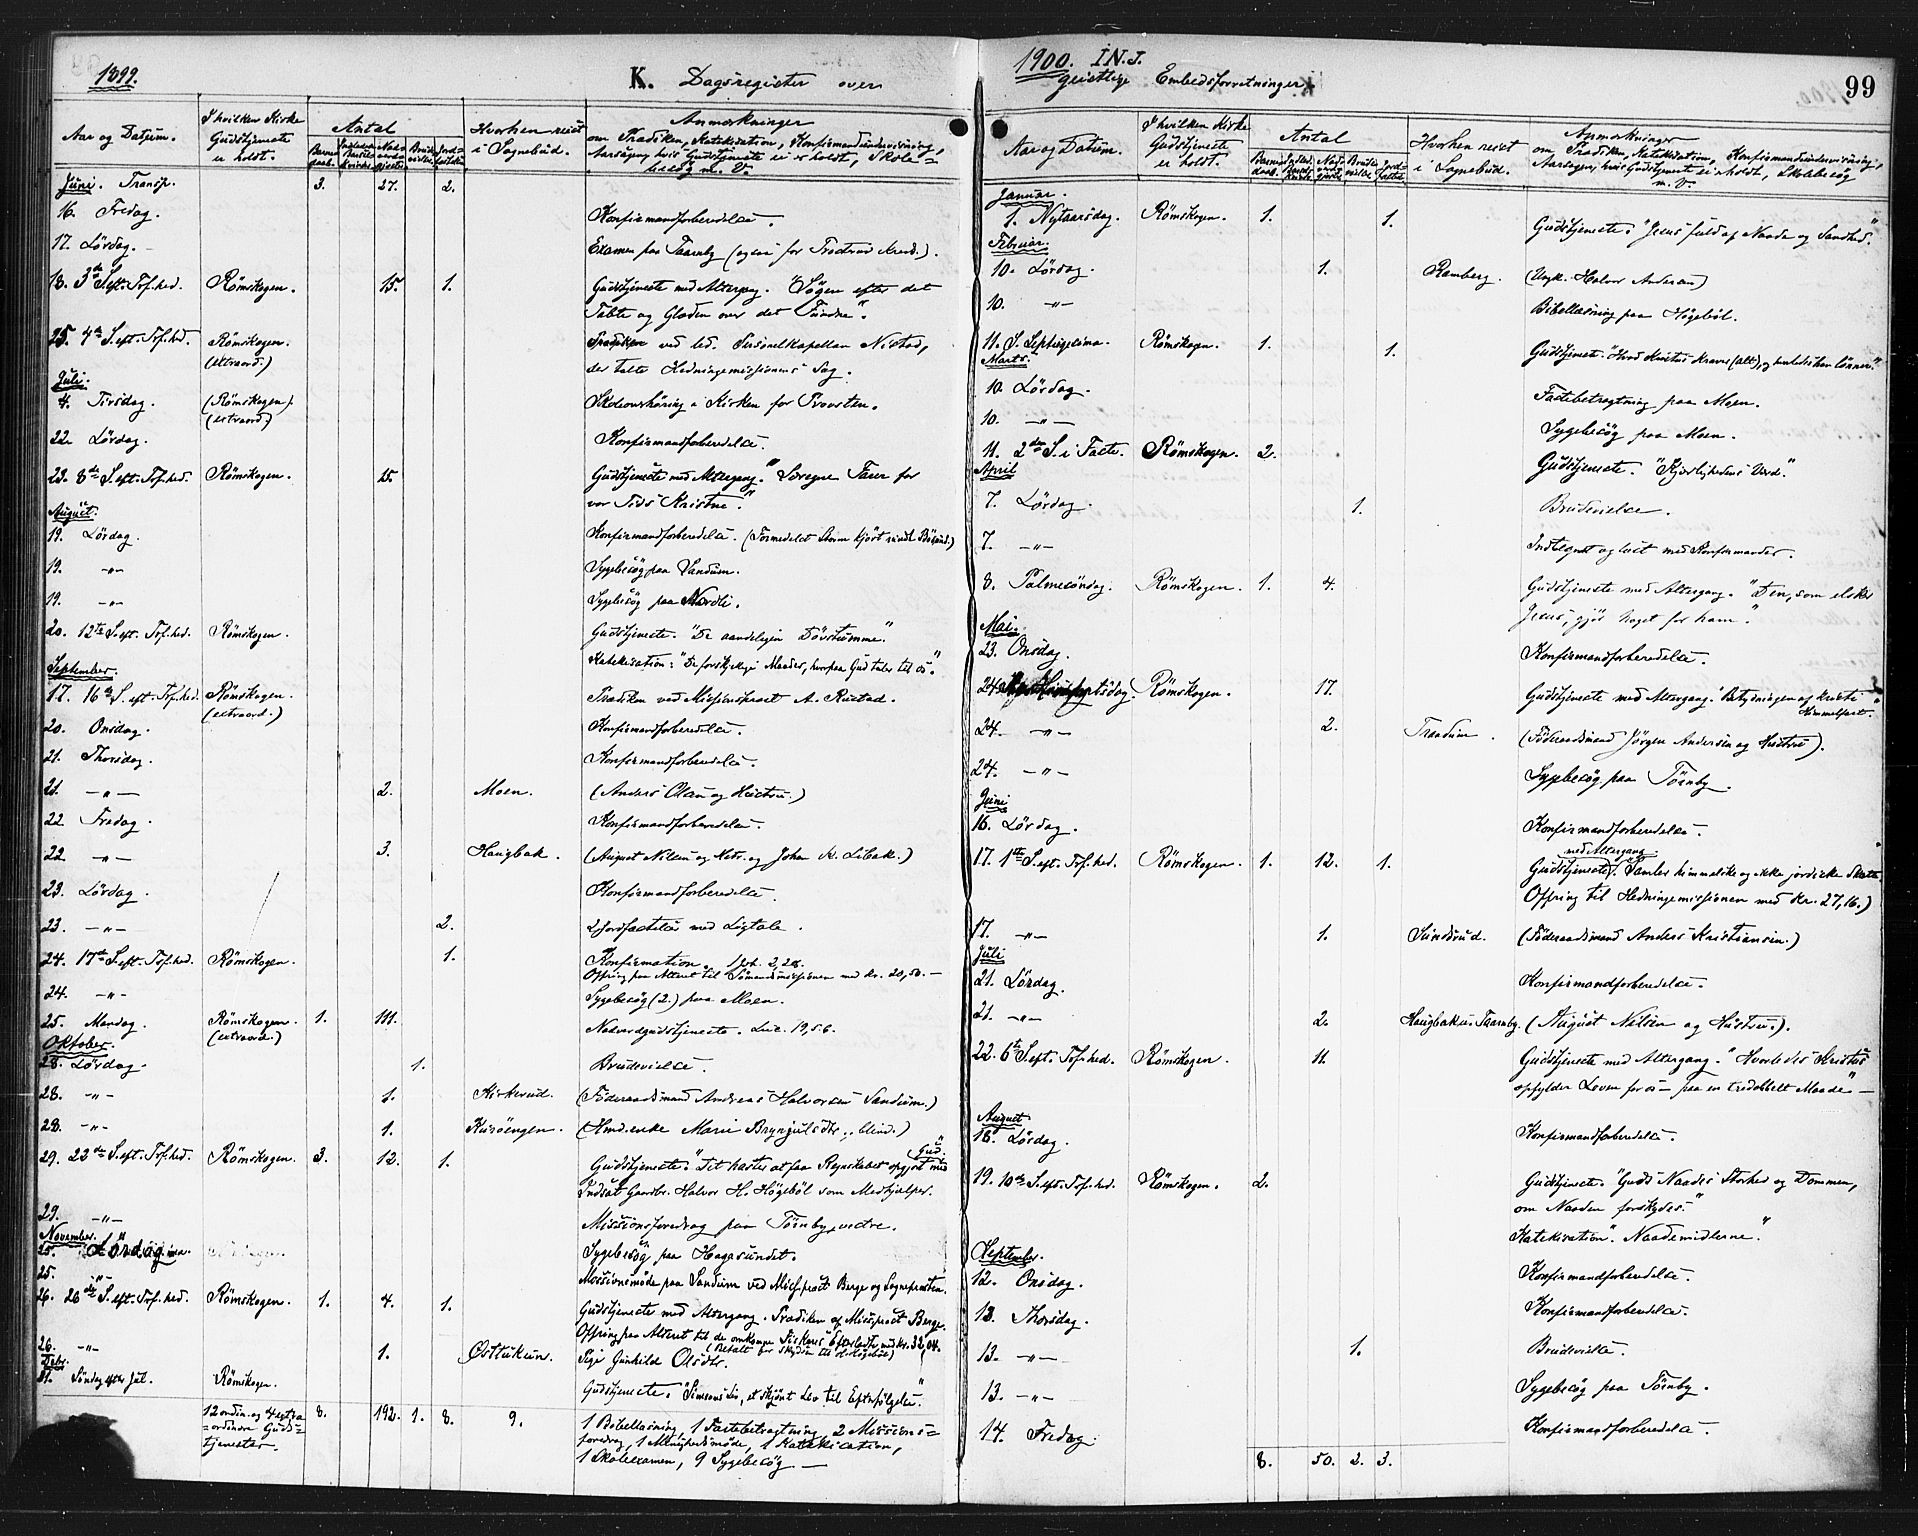 1899.
K. Dagsregister over
Aar og Datum.
I hvilken Kirke Gudstjeneste er holdt.
Antal
Hvorhen reist i Sognebud.
Anmærkninger
om Prædiken, Katekisation, Konfirmandundervisning,
Aarsagen, hvis Gudstjeneste ei er holdt, Skole-
besøg m. V.
Juni. Transp. 3. 27. 2.
16. Fredag. Konfirmandforberedelse.
17. Lördag. Examen paa Taarnby
18. 3de S. eft. Tref.hed. Römskogen. 15. 1. Gudstjeneste med Altergang. "Søgen efter det
Tabte og Glæden over det Fundne".
25. 4de S. eft. Tref.hed. Römskogen. Prædiken ved res. Personelkapellan Nistad,
(extraord.) der talte Hedningemissionens Sag.
Juli.
4. Tirsdag. (Römskogen). Skoleoverhøring i Kirken for Provsten.
(extraord.)
22 Lördag. Konfirmandforberedelse.
23. 8de S. eft. Tref.hed. Römskogen. 15. Gudstjeneste med Altergang.
vor Tids Kristne".
August.
19. Lördag. Konfirmandforberedelse.
19. -"- Sygebesög paa Sandum.
19. -"- Sygebesög paa Nordli.
20. 12te S. eft. Tref.hed. Römskogen. Gudstjeneste. "De aandelige Dövstumme."
Katekisation: "De forskjellige Maader, hvorpaa Gud taler til os".
September.
17. 16de S. eft. Tref.hed. Römskogen. Prædiken ved Missionsprest A. Rustad.
(extraord.)
20. Onsdag. Konfirmandforberedelse.
21. Thorsdag. Konfirmandforberedelse.
21. -"- 2. Moen. (Anders Olsen og Hustru.)
22 Fredag. Konfirmandforberedelse.
22 -"- 3. Haugbak. (August Nilsen og Hustr. og Johan K. Libak.)
23. Lördag. Konfirmandforberedelse.
23. -"- 2. 2 Jordfæstelser med Ligtale.
24. 17de S. eft. Tref.hed. Römskogen. 1. Konfirmation. 1 Joh. 2,28.
Offring paa Alteret til Sömandsmissionen med Kr. 20,50.-
24. -"- Sygebesög (2.) paa Moen.
25. Mandag. Römskogen. 1. 111. Nadverdgudstjeneste. Luc. 19,5.6.
(extraord.)
Oktober.
28. Lördag. 1. Brudevielse.
28. -"- 1. Kirkerud. (Föderaadsmand Andreas Halvorsen Sandum.)
28. -"- 1. Kusöengen. (Hmd.enke Marie Brynjulfsdtr., blind.)
29. 22de S. eft. Tref.hed. Römskogen. 3. 12. 1. Gudstjeneste. "Det haster at faa Regnskabet opgjort med Gud."
Indsat Gaardbr. Halvor H. Högeböl som Medhjælper.
29. -"- Missionsforedrag paa Törnby vestre.
November.
25. Lördag Sygebesög paa Hagasundet.
25. -"- Missionsmöde paa Sandum ved Miss.prest Berge og Sognepresten.
26. 26de S. eft. Tref.hed. Römskogen. 1. 4. 1. Gudstjeneste med Altergang. Prædiken af Missprest Berge.
Offring paa Alteret til de omkomne Fiskeres Efterladte med kr. 32,04.
26. -"- 1. Pige Gunhild Olsdtr.
Decbr.
31. Söndag efter Jul. Römskogen. Gudstjeneste. "Simeons Liv, et skjönt Liv til Efterfölgelse".
12 ordin. og 4 extra-
ordinære Guds-
tjenester. 8. 192. 1. 8. 9. 1 Bibellæsning, 1 Fastebetragtning, 2 Missions-
foredrag, 1 Menighedsmöde, 1 Katekisation,
1 Skoleexamen, 9 Sygebesög —
1900. I.N.J.
geistlige Embedsforretninger
99
Aar og Datum.
I hvilken Kirke Gudstjeneste er holdt.
Antal
Hvorhen reist i Sognebud.
Anmærkninger
om Prædiken, Katekisation, Konfirmandundervisning,
Aarsagen, hvis Gudstjeneste ei er holdt, Skolebesøg
m. V.
Januar.
1. Nytaarsdag. Römskogen. 1. 1. Gudstjeneste. "Jesus fuld af Naade og Sandhed."
Februar.
10. Lördag. 1. Ramberg. (Ungk. Halvor Andersen)
10. -"- Bibellæsning paa Högeböl.
11. S. Septuagesima. Römskogen. 1. 1. Gudstjeneste. "Hvad Kristus kræver (alt), og hvorledes han lönner."
Marts.
10. Lördag. Fastebetragtning paa Moen.
10. -"- Sygebesög paa Moen.
11. 2den S. i Faste. Römskogen. 2. Gudstjeneste. "Kjærlighedens Værd."
April
7. Lördag. 1. Brudevielse.
7. -"- Indtegnet og læst med Konfirmander.
8. Palmesöndag. Römskogen. 1. 4. Gudstjeneste med Altergang. "Den, som elsker
Jesus, gjör Noget for ham".
Mai.
23. Onsdag. Konfirmandforberedelse.
24. Himmelfartsdag Römskogen. 17. Gudstjeneste med Altergang. "Betydningen af Kristi
Himmelfart."
24. -"- 2. Trandum. (Föderaadsmand Jörgen Andersen og Hustru).
24. -"- Sygebesög paa Törnby.
Juni
16. Lördag. Konfirmandforberedelse.
17. 1ste S. eft. Tref.hed. Römskogen. 1. 12. 1. Gudstjeneste med Altergang. "Samler himmelske og ikke jordiske Skatte."
Offring til Hedningemissionen med Kr. 27,16.)
17. -"- 1. Sundsrud. (Föderaadsmand Anders Kristiansen.)
Juli
21. Lördag. Konfirmandforberedelse.
21. -"- 2. Haugbak u. Taarnby. (August Nilsen og Hustru.).
22. 6te S. eft. Tref.hed. Römskogen. 11. Gudstjeneste med Altergang. "Hvorledes Kristus
opfylder Loven for os – paa en tredobbelt Maade" –
August
18. Lördag. Konfirmandforberedelse.
19. 10de S. eft. Tref.hed. Römskogen. 2. Gudstjeneste. "Guds Naades Storhed og Dommen,
om Naaden forskydes."
Katekisation. "Naademidlerne".
September.
12. Onsdag. Konfirmandforberedelse.
13. Thorsdag. Konfirmandforberedelse.
13. -"- 1. Brudevielse.
13. -"- Sygebesög paa Törnby.
14. Fredag. Konfirmandforberedelse.
8. 50. 2. 3.